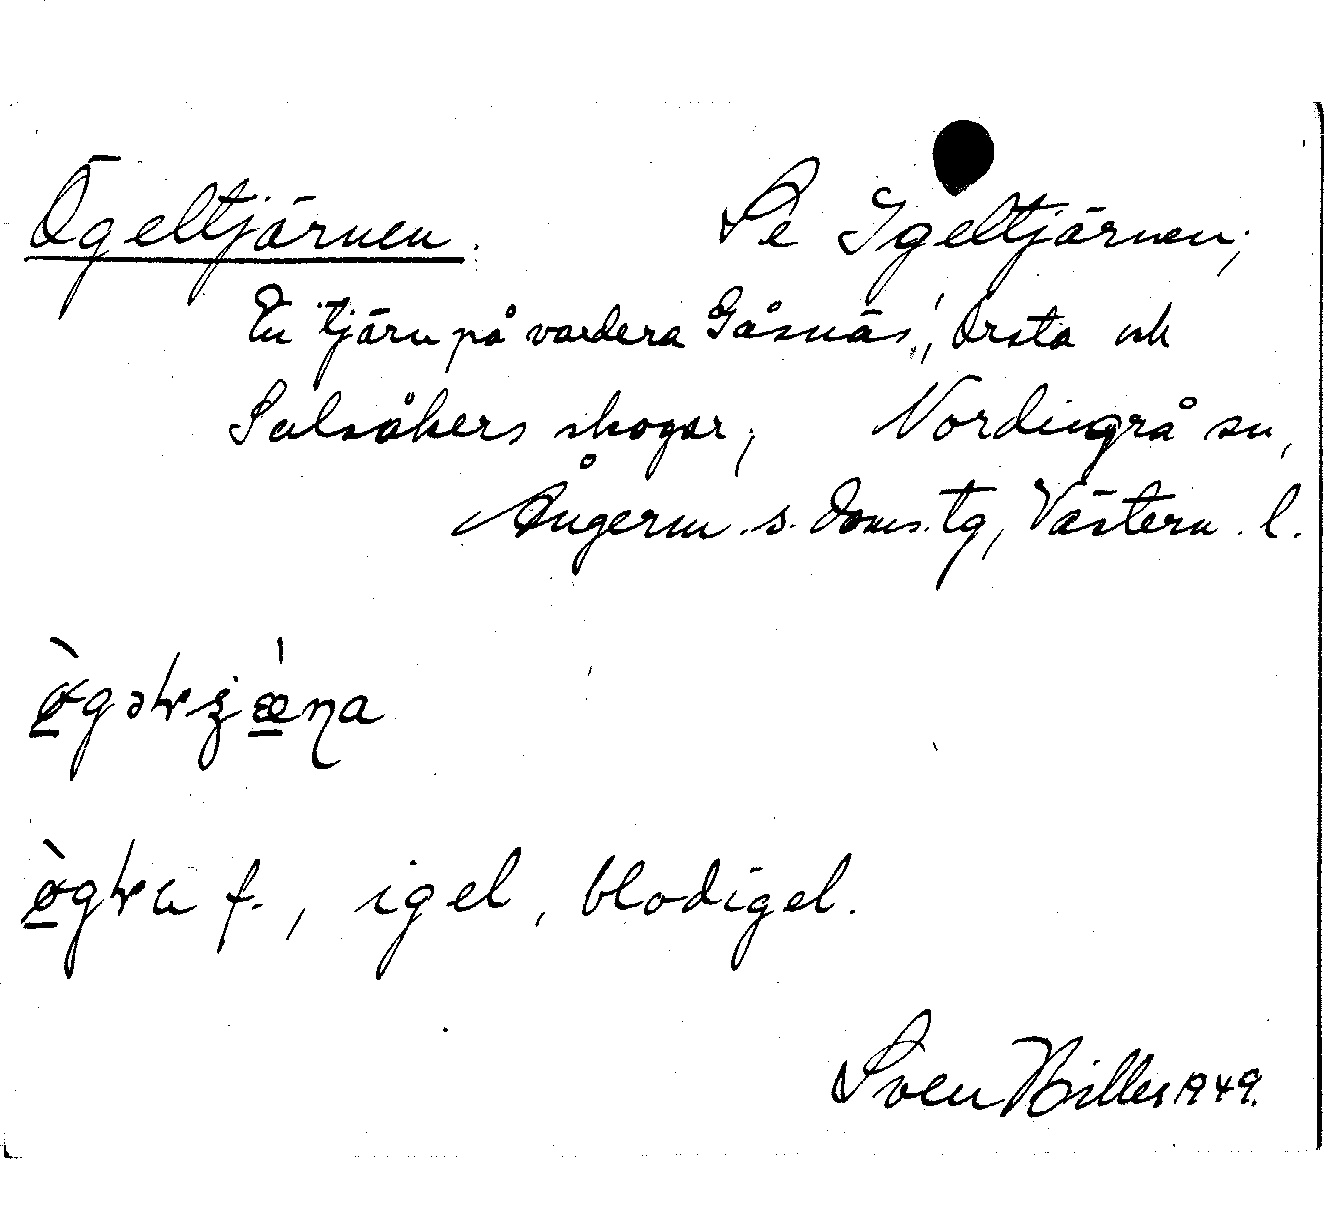 Ögeltjärnen. Se Igeltjärnen;
En tjärn på vardera Gåsnäs', Orsta och
Salsåkers skogar, Nordingrå sn,
Ångerm. s. doms. tg, Västern. l.
f., igel, blodigel.
Sven Hilles 1949.